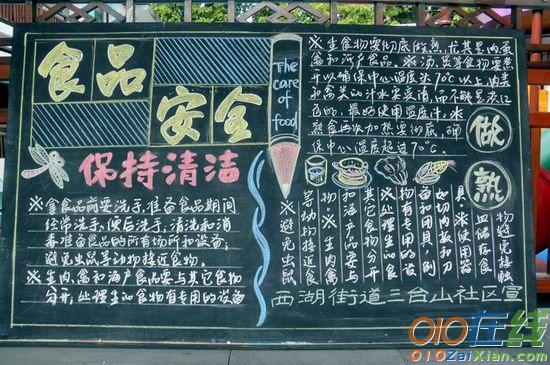 食品
安全
保持清洁
※拿食品前要洗手,准备食品期间
经常洗手,便后洗手,清洗和消
毒准备食品的所有场所和设备;
避免虫鼠等动物接近食物。
※生肉、禽和海产食品要与其它食物
分开;处理生的食物有专用的设备
The
care
of
food
※生食物要彻底的熟,尤其是肉蛋
禽和海产食品。※汤、煲等食物要煮
开以确保中心温度达70℃以上;肉类
和禽类的汁水要变清,而不能是淡红
色的,最好使用温度计。※
熟食再次加热要彻底,确
保中心温度超过70℃。
做
熟
物避免接触
皿储存食
具※使用器
如切肉板和刀
备和用具,例
物有专用的设
※处理生的食
其它食物分开
和海产品要与
物。※生肉、禽
等动物接近食
※避免虫鼠
西湖街道三台山社区宣
010在线
010ZaiXian.com